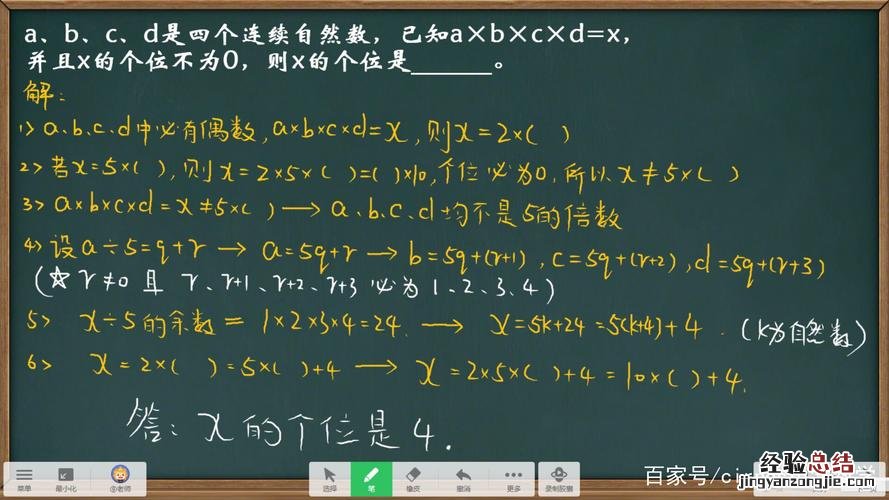 a、b、c、d是四个连续自然数，已知a×b×c×d=x，
并且x的个位不为0，则x的个位是______。
解：
1> a.b.c.d中必有偶数,a×b×c×d=x,则x=2×( )
2> 若x=5×( ),则x=2×5×( )=( )×10,个位必为0,所以x≠5×( )
3> a×b×c×d=x≠5×( )→a.b.c.d均不是5的倍数
4> 设a÷5=q+r→a=5q+r→b=5q+(r+1),c=5q+(r+2),d=5q+(r+3)
(☆r≠0且 r、r+1、r+2、r+3必为1、2、3、4)
5> x÷5的余数=1×2×3×4=24.→x=5k+24=5(k+4)+4.(k为自然数)
6> x=2×( )=5×( )+4→x=2×5×( )+4=10×( )+4.
答：x的个位是4.
菜单 最小化 @老师 选择 笔 橡皮 撤消 更多 录制胶囊
百家号/
经验总结
jingyanzongjie.com